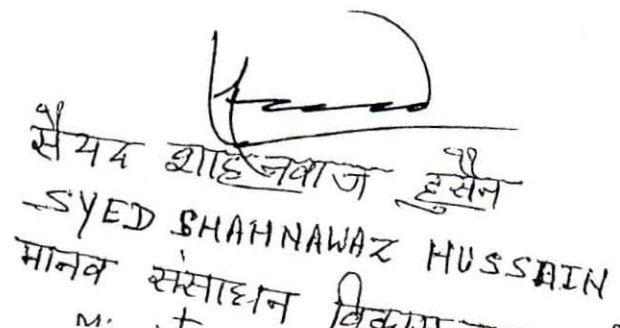 सैयद शाहनवाज हुसैन
SYED SHAHNAWAZ HUSSAIN
मानव संसाधन विकास